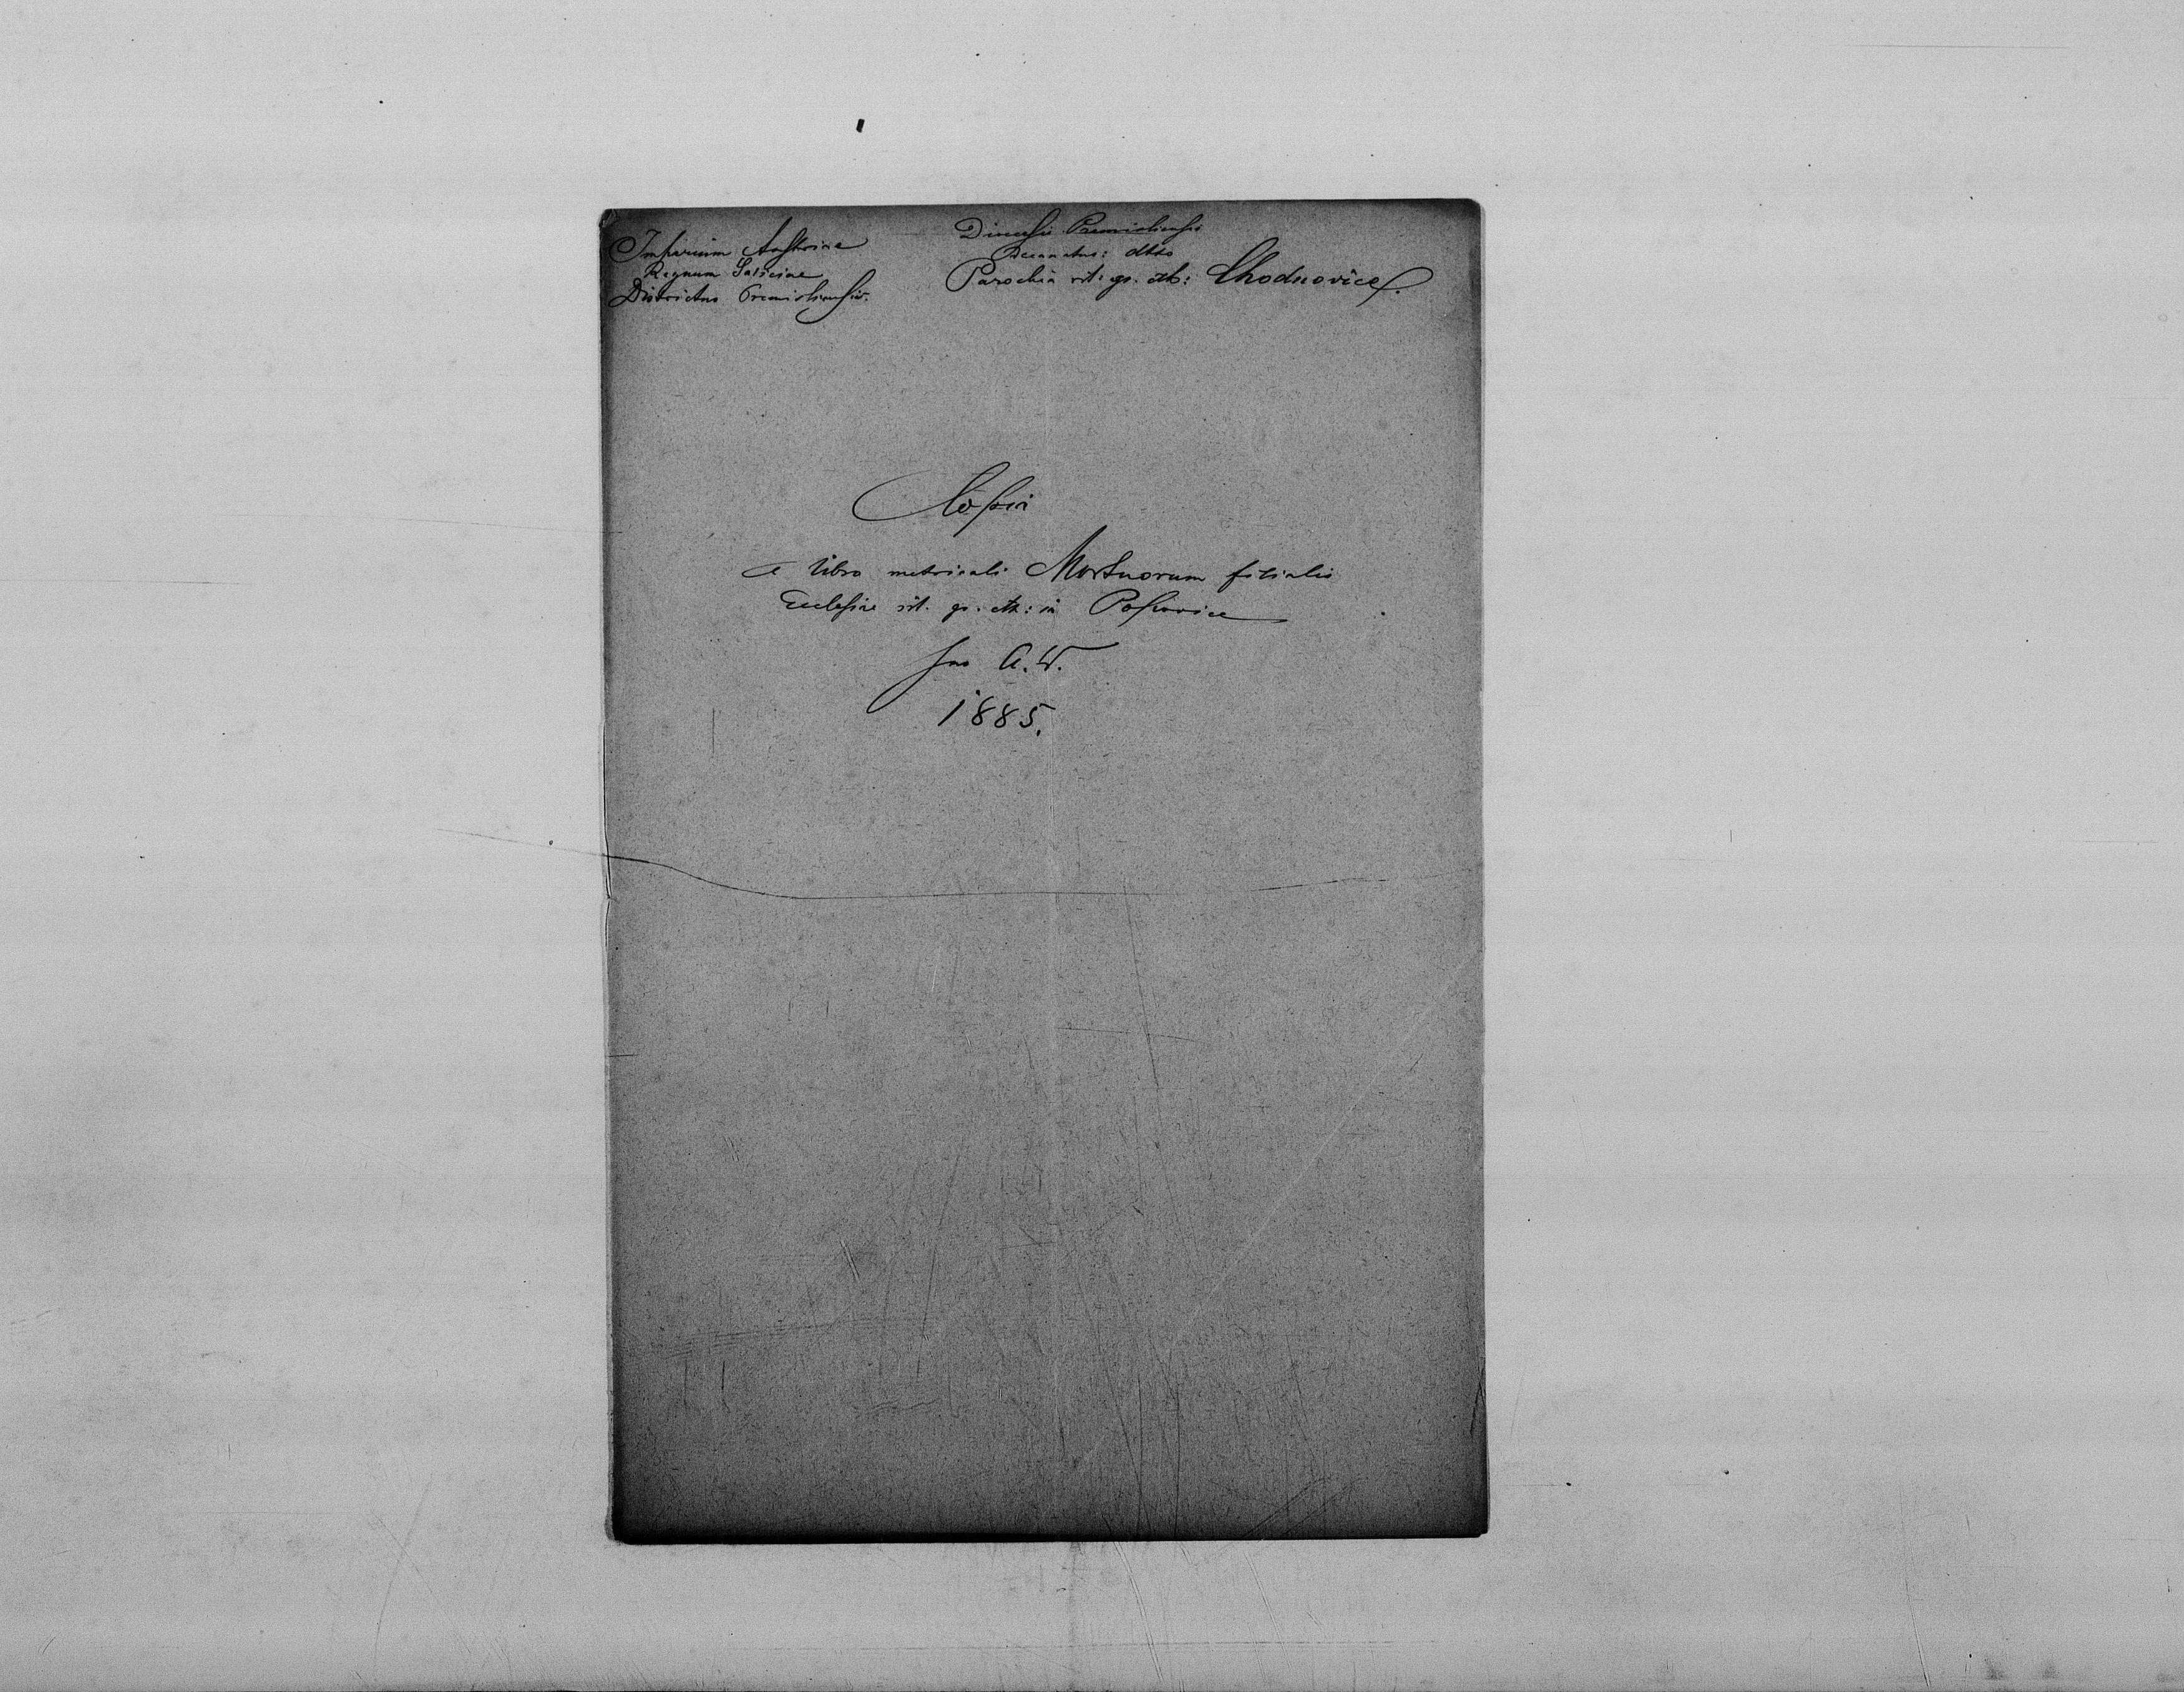 Imperium Austriae
Regnum Galiciae
Districtus Premisliensis.
Dioecesis Premisliensis
Decanatus: dtto
Parochia rit: gr. cth: Chodnovice.
Copia
e libro metricali Mortuorum filialis
Ecclesiae rit. gr. cth: in Popowice
pro A.D.
1885.